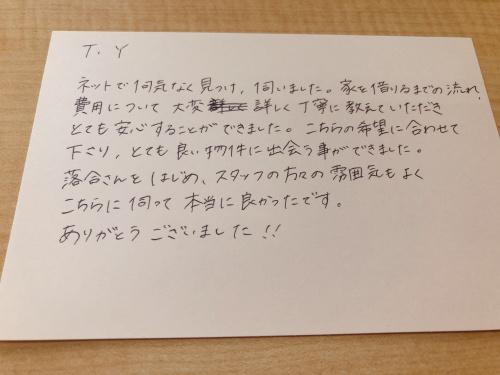 T. Y
ネットで何気なく見つけ、伺いました。家を借りるまでの流れ、
費用について 大変 詳しく丁寧に教えていただき
とても安心することができました。こちらの希望に合わせて
下さり、とても良い物件に出会う事ができました。
落合さんをはじめ、スタッフの方々の雰囲気もよく
こちらに伺って本当に良かったです。
ありがとうございました!!